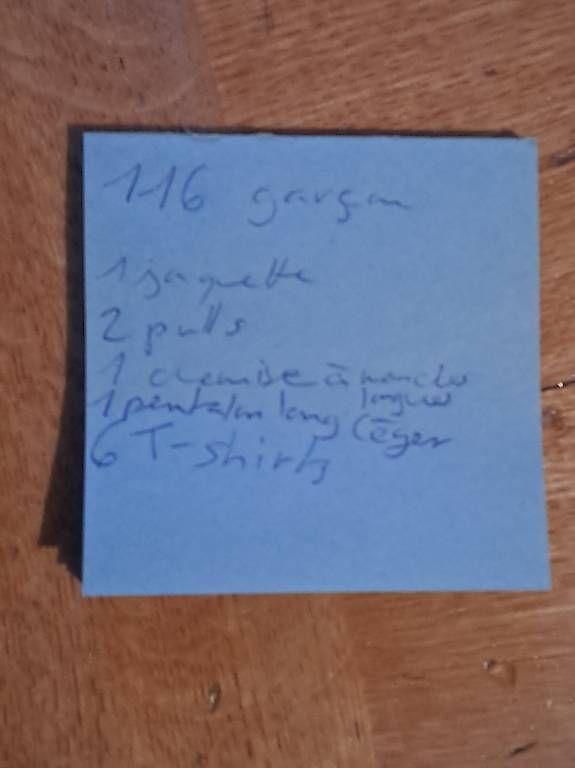 116 garçon
1 jaquette
2 pulls
1 chemise à manches
longues
1 pantalon long léger
6 T-shirts